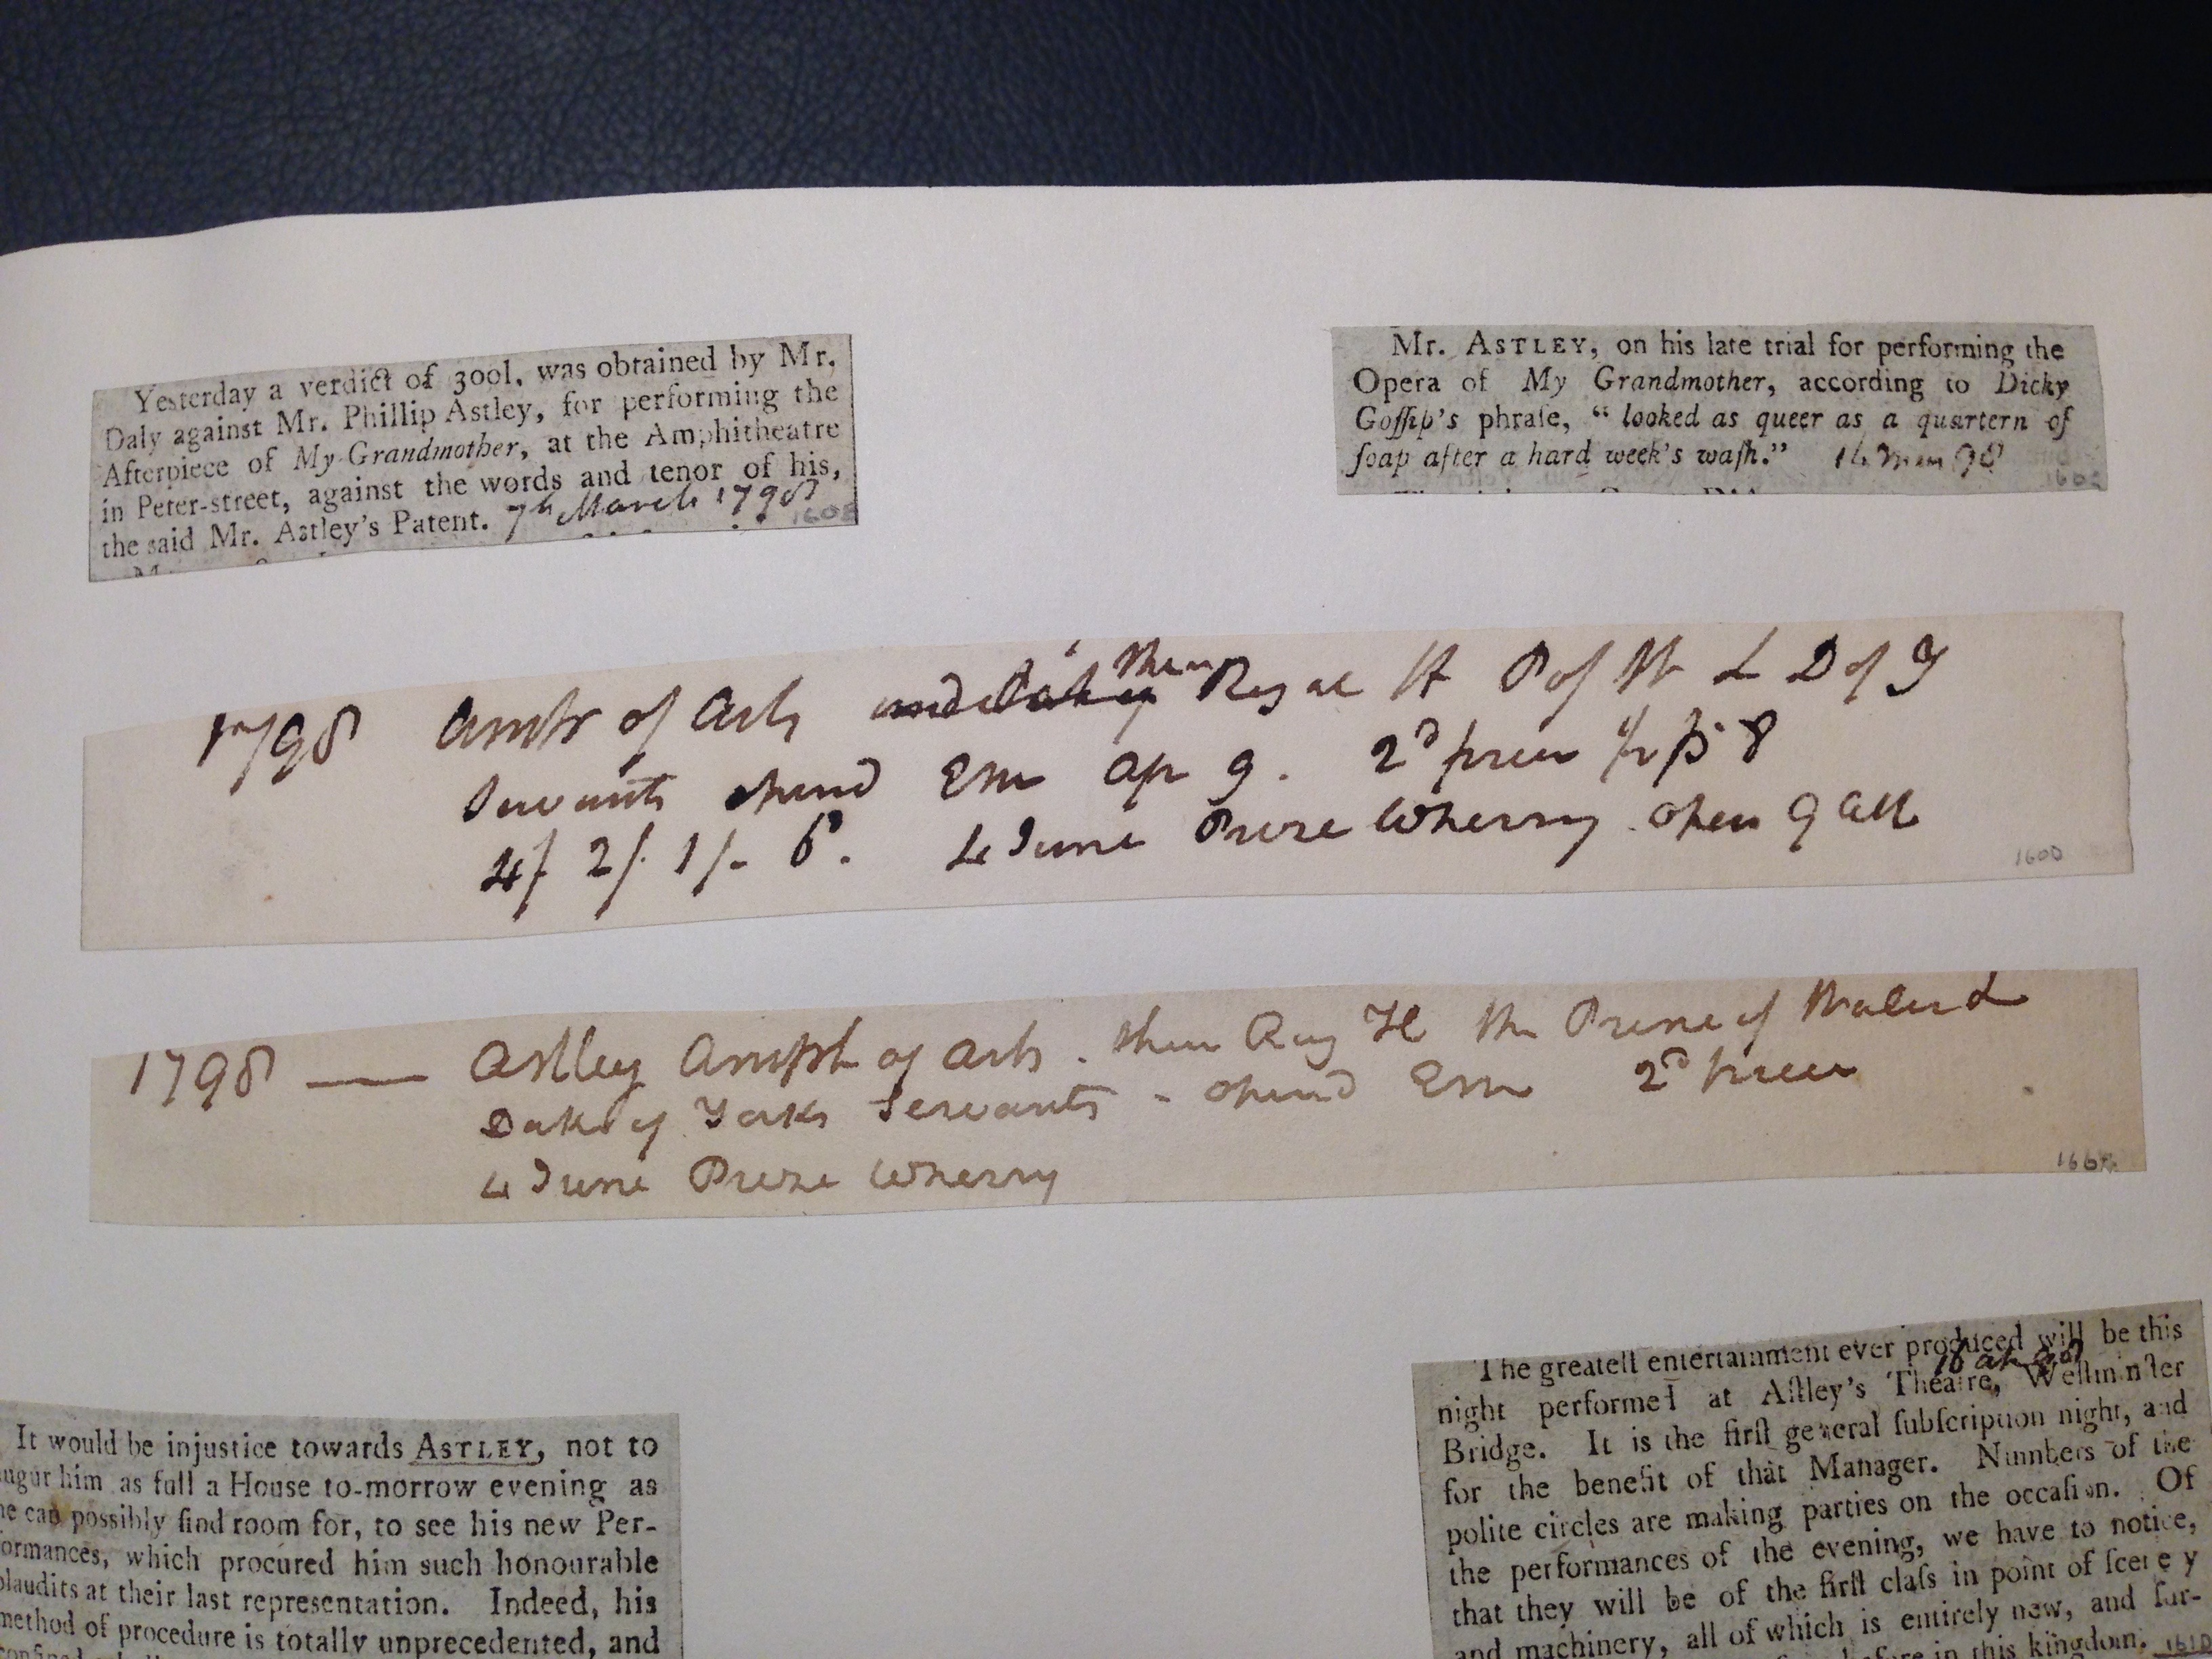 Yesterday a verdict of 300l. was obtained by Mr.
Daly against Mr. Phillip Astley, for performing the
Afterpiece of My Grandmother, at the Amphitheatre
in Peter-street, against the words and tenor of his,
the said Mr. Astley's Patent. 7th March 1798
Mr. ASTLEY, on his late trial for performing the
Opera of My Grandmother, according to Dicky
Goſſip's phraſe, “ looked as queer as a quartern of
ſoap after a hard week's waſh.”
1798 of Arts Their Royal H P of W & D of Y
Servants opend Em Ap 9. 2d price 8
4/ 2/. 1/- 6d. 4 June Prize Wherry. open
160D
1798 — Astley Amph of Arts. their Roy H the Prince of Wales &
Duke of Yorks Servants - opend Em 2d price
4 June Prize Wherry
It would be injustice towards ASTLEY, not to
him as full a House to-morrow evening as
he can possibly find room for, to see his new Per-
ormances, which procured him such honourable
plaudits at their last representation. Indeed, his
method of procedure is totally unprecedented, and
The greateſt entertainment ever produced will be this
16 ap 98
night performed at Aſtley's Theatre, Weſtminſter
Bridge. It is the firſt general ſubſcription night, and
for the benefit of that Manager. Numbers of the
polite circles are making parties on the occaſion. Of
the performances of the evening, we have to notice,
that they will be of the firſt claſs in point of ſcenery
and machinery, all of which is entirely new, and far-
before in this kingdom. 161D